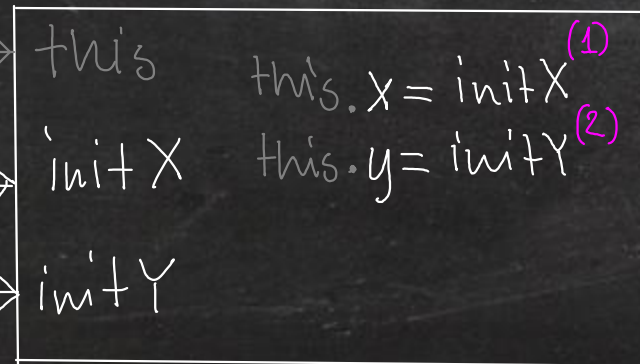 this
initX
initY
this.x = initX (1)
this.y = initY (2)